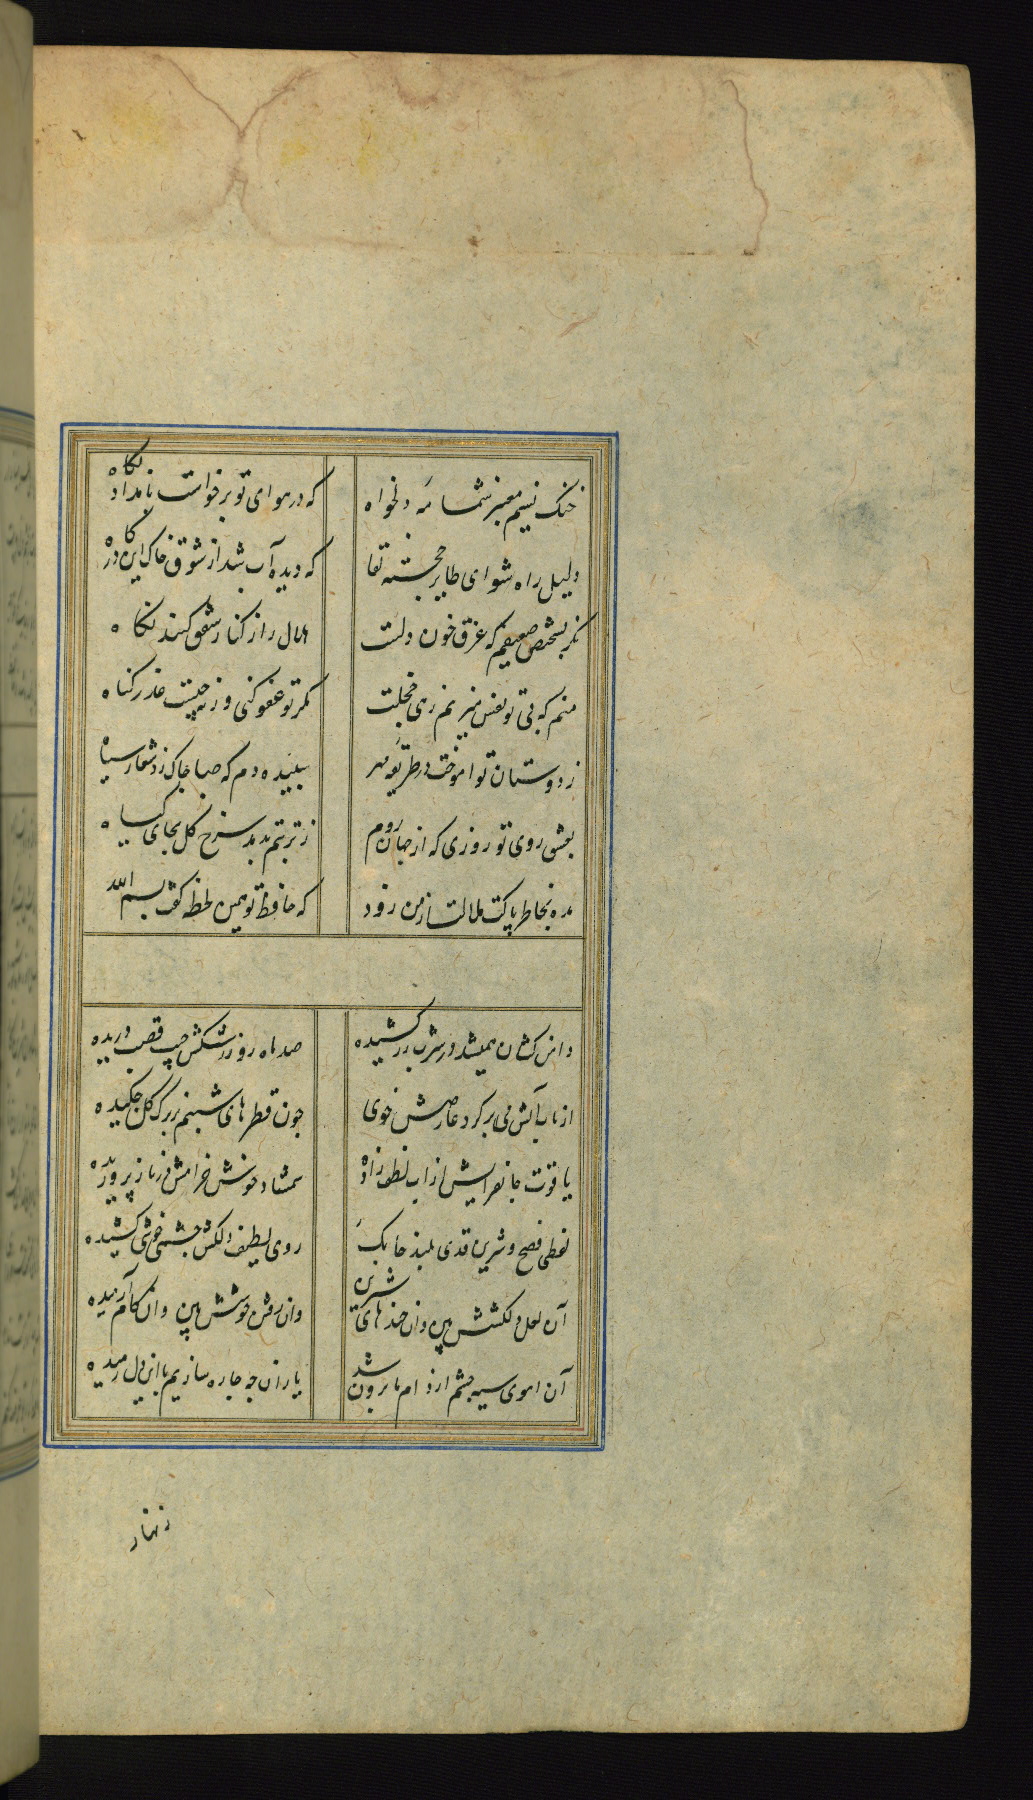 خنک نسیم معنبر شمامه دلخواه
که در هوای تو برخواست بامداد پگاه
دلیل راه شو ای طایر خجسته لقا
که دیده آب شد از شوق خاک این درگاه
نگر بشخص ضعیفم که غرق خون دلست
هلال را ز کنار شفق کنند نگاه
منم که بی تو نفس میزنم زهی خجلت
مگر تو عفو کنی ور نه چیست عذر گناه
ز دوستان تو اموخت در طریقه مهر
سپیده دم که صبا چاک زد شعار سیاه
بعشق روی تو روزی که از جهان بروم
ز تربتم بدمد سرخ گل بجای گیاه
مده بخاطر پاکت ملالت از من زود
که حافظ تو همین لحظه گفت بسم الله
دامن کشان همیشد در شرب زر کشیده
صد ماه رو ز رشکش جیب قصب دریده
از تاب آتش می بر گرد عارضش خوی
چون قطرهای شبنم بر برگ گل چکیده
یاقوت جانفزایش از اب لطف زاده
شمشاد خوش خرامش در ناز پروریده
لفظی فصیح و شیرین قدی بلند چابک
روی لطیف دلکش چشمی خوش کشیده
آن لعل دلکشش بین وان خندهای شیرین
وان رفتن خوشش بین وان کام آرمیده
آن اهوی سیه چشم از دام ما برون شد
یاران چه چاره سازیم با این دل رمیده
زنهار